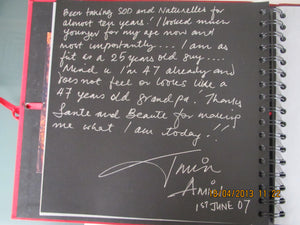 Been taking SOD and Naturelles for
almost ten years! I looked much
younger for my age now and
most importantly.... I am as
fit as a 25 years old guy....
Mind u I'm 47 already and
does not feel or looks like a
47 years old grandpa! Thanks
Sante and Beaute for making
me what I am today!!
Amin
Amin
1ST JUNE 07
04/2013 11:2